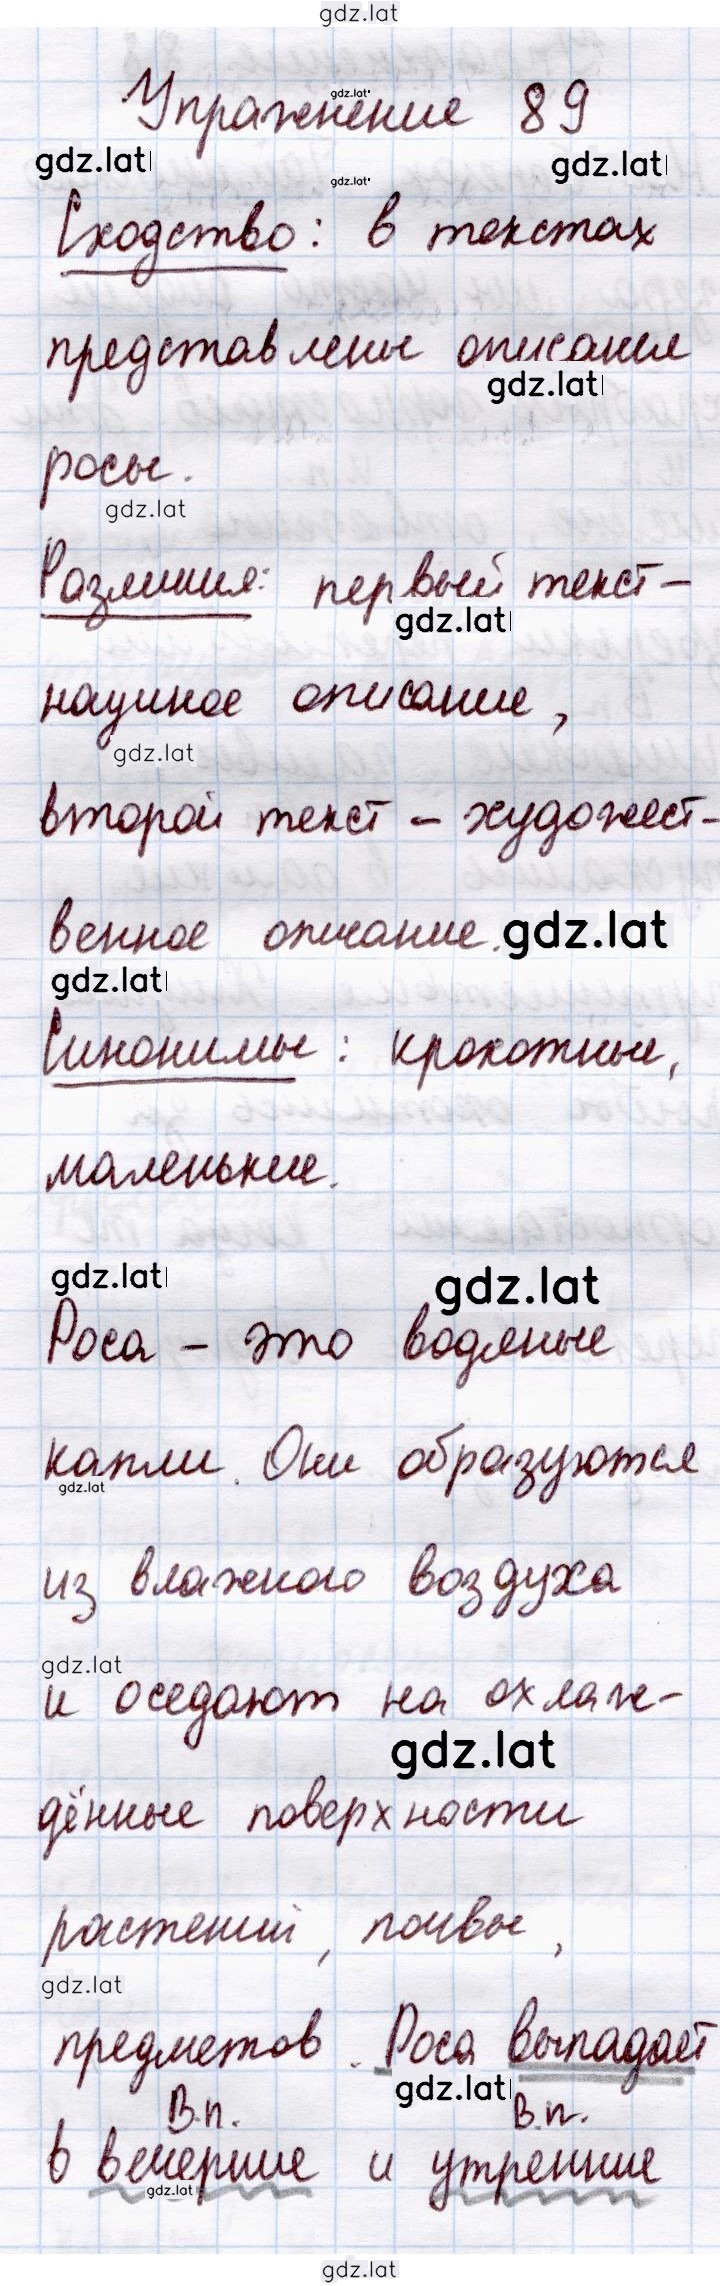 gdz.lat
gdz.lat
Упражнение 89
gdz.lat
gdz.lat
gdz.lat
Сходство: в текстах
представлены описания
gdz.lat
росы.
gdz.lat
Различия: первый текст-
gdz.lat
научное описание,
gdz.lat
второй текст - художест-
венное описание.
gdz.lat
gdz.lat
Синонимы: крохотные,
маленькие.
gdz.lat
gdz.lat
Роса - это водяные
капли. Они образуются
gdz.lat
из влажного воздуха
gdz.lat
и оседают на охлаж-
gdz.lat
дённые поверхности
растений, почвы,
gdz.lat
предметов. Роса выпадает
gdz.lat
В.п. В.п.
в вечерние и утренние
gdz.lat
gdz.lat